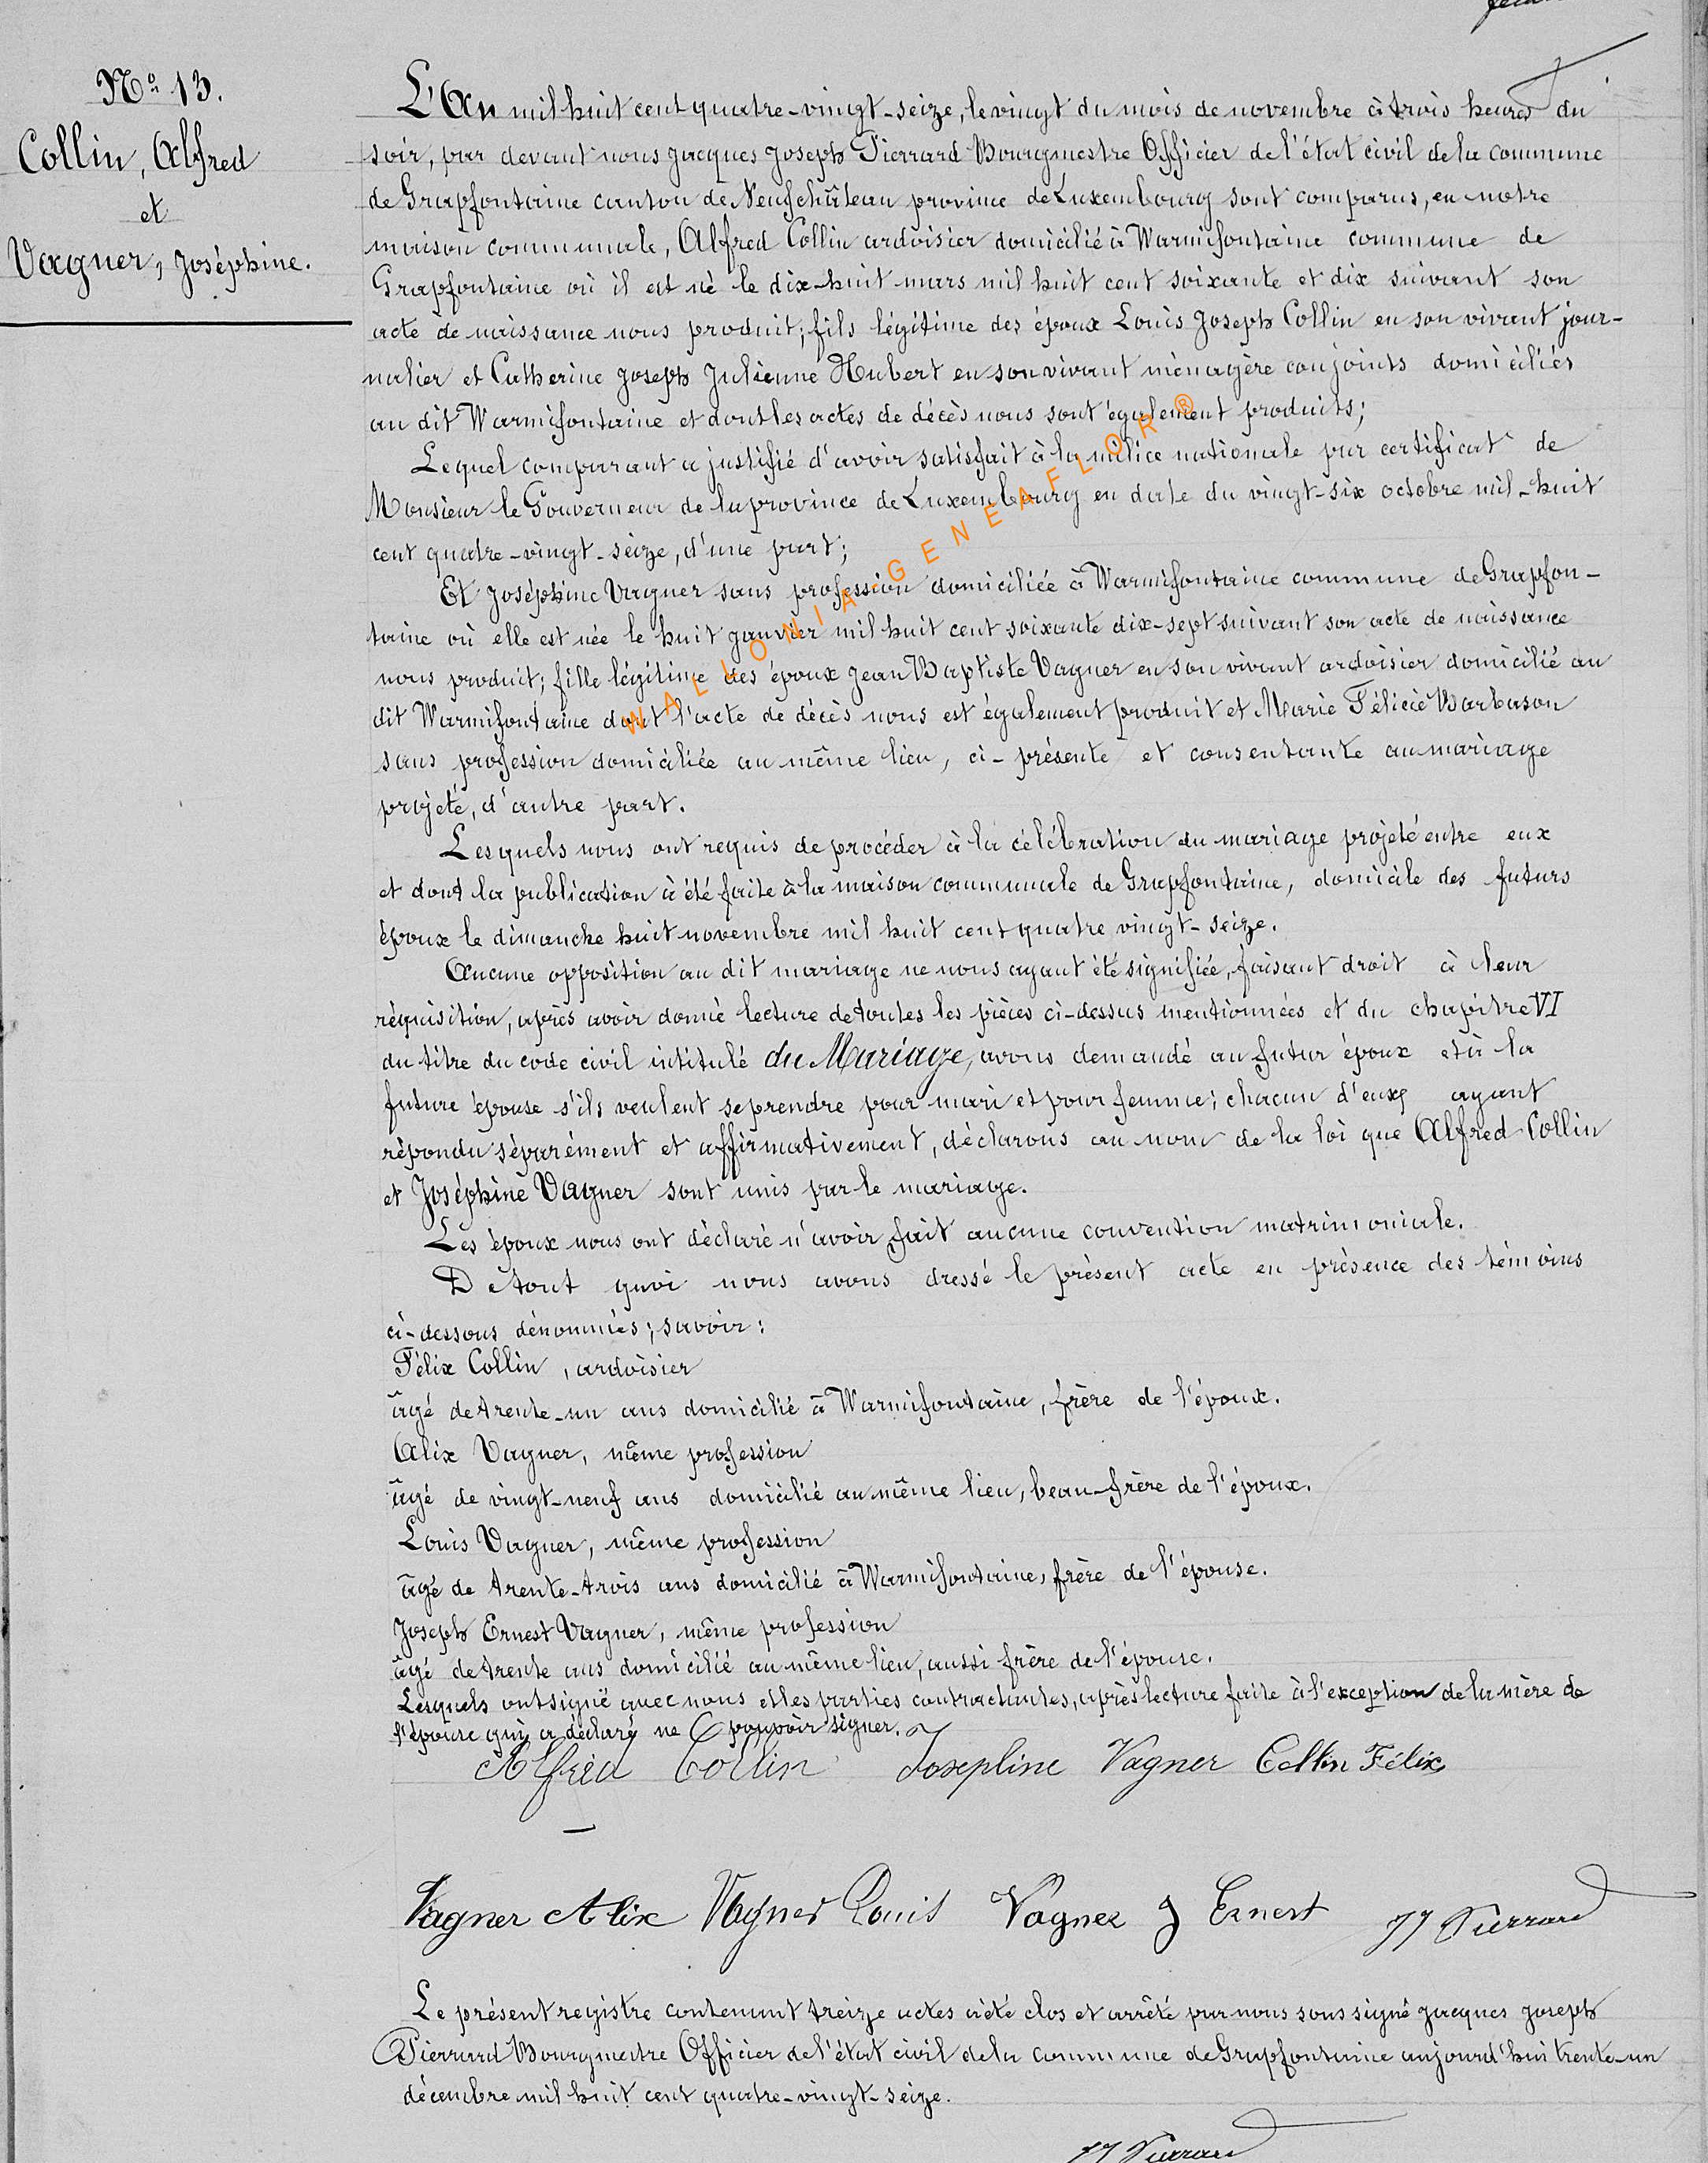 N° 13.
Collin, Alfred
et
Vagner, Joséphine.
L'An mil huit cent quatre-vingt-seize, le vingt du mois de novembre à trois heures du
soir, par devant nous Jacques Joseph Pierrard Bourgmestre Officier de l'état civil de la commune
de Grapfontaine canton de Neufchâteau province de Luxembourg sont comparus, en notre
maison communale, Alfred Collin ardoisier domicilié à Warmifontaine commune de
Grapfontaine où il est né le dix-huit mars mil huit cent soixante et dix suivant son
acte de naissance nous produit; fils légitime des époux Louis Joseph Collin en son vivant jour-
nalier et Catherine Joseph Julienne Hubert en son vivant ménagère conjoints domiciliés
au dit Warmifontaine et dont les actes de décès nous sont également produits;
Lequel comparant a justifié d'avoir satisfait à la milice nationale par certificat de
Monsieur le Gouverneur de la province de Luxembourg en date du vingt-six octobre mil-huit
cent quatre-vingt-seize, d'une part;
Et Joséphine Vagner sans profession domiciliée à Warmifontaine commune de Grapfon-
taine où elle est née le huit janvier mil huit cent soixante dix-sept suivant son acte de naissance
nous produit; fille légitime des époux Jean Baptiste Vagner en son vivant ardoisier domicilié au
dit Warmifontaine dont l'acte de décès nous est également produit et Marie Félicie Barbason
sans profession domiciliée au même lieu, ci-présente et consentante au mariage
projeté, d'autre part.
Lesquels nous ont requis de procéder à la célébration du mariage projeté entre eux
et dont la publication à été faite à la maison communale de Grapfontaine, domicile des futurs
époux le dimanche huit novembre mil huit cent quatre vingt-seize.
Aucune opposition au dit mariage ne nous ayant été signifiée, faisant droit à leur
réquisition, après avoir donné lecture de toutes les pièces ci-dessus mentionnées et du chapitre VI
du titre du code civil intitulé du Mariage, avons demandé au futur époux et à la
future épouse s'ils veulent se prendre pour mari et pour femme; chacun d'eux ayant
répondu séparément et affirmativement, déclarons au nom de la loi que Alfred Collin
et Joséphine Vagner sont unis par le mariage.
Les époux nous ont déclaré n'avoir fait aucune convention matrimoniale.
De tout quoi nous avons dressé le présent acte en présence des témoins
ci-dessous dénommés; savoir:
Félix Collin, ardoisier
âgé de trente-un ans domicilié à Warmifontaine, frère de l'époux.
Alix Vagner, même profession
âgé de vingt-neuf ans domicilié au même lieu, beau-frère de l'époux.
Louis Vagner, même profession
âgé de trente-trois ans domicilié à Warmifontaine, frère de l'épouse.
Joseph Ernest Vagner, même profession
âgé de trente ans domicilié au même lieu, aussi frère de l'épouse.
Lesquels ont signé avec nous et les parties contractantes, après lecture faite à l'exception de la mère de
l'épouse qui a déclaré ne pouvoir signer.
Alfred Collin Josephine Vagner Collin Félix
Vagner Alix Vagner Louis Vagner J Ernest JJ Pierrard
Le présent registre contenant treize actes a été clos et arrêté par nous soussigné Jacques Joseph
Pierrard Bourgmestre Officier de l'état civil de la commune de Grapfontaine aujourd'hui trente-un
décembre mil huit cent quatre-vingt-seize.
JJ Pierrard
WALLONIA-GENEAFLOR®